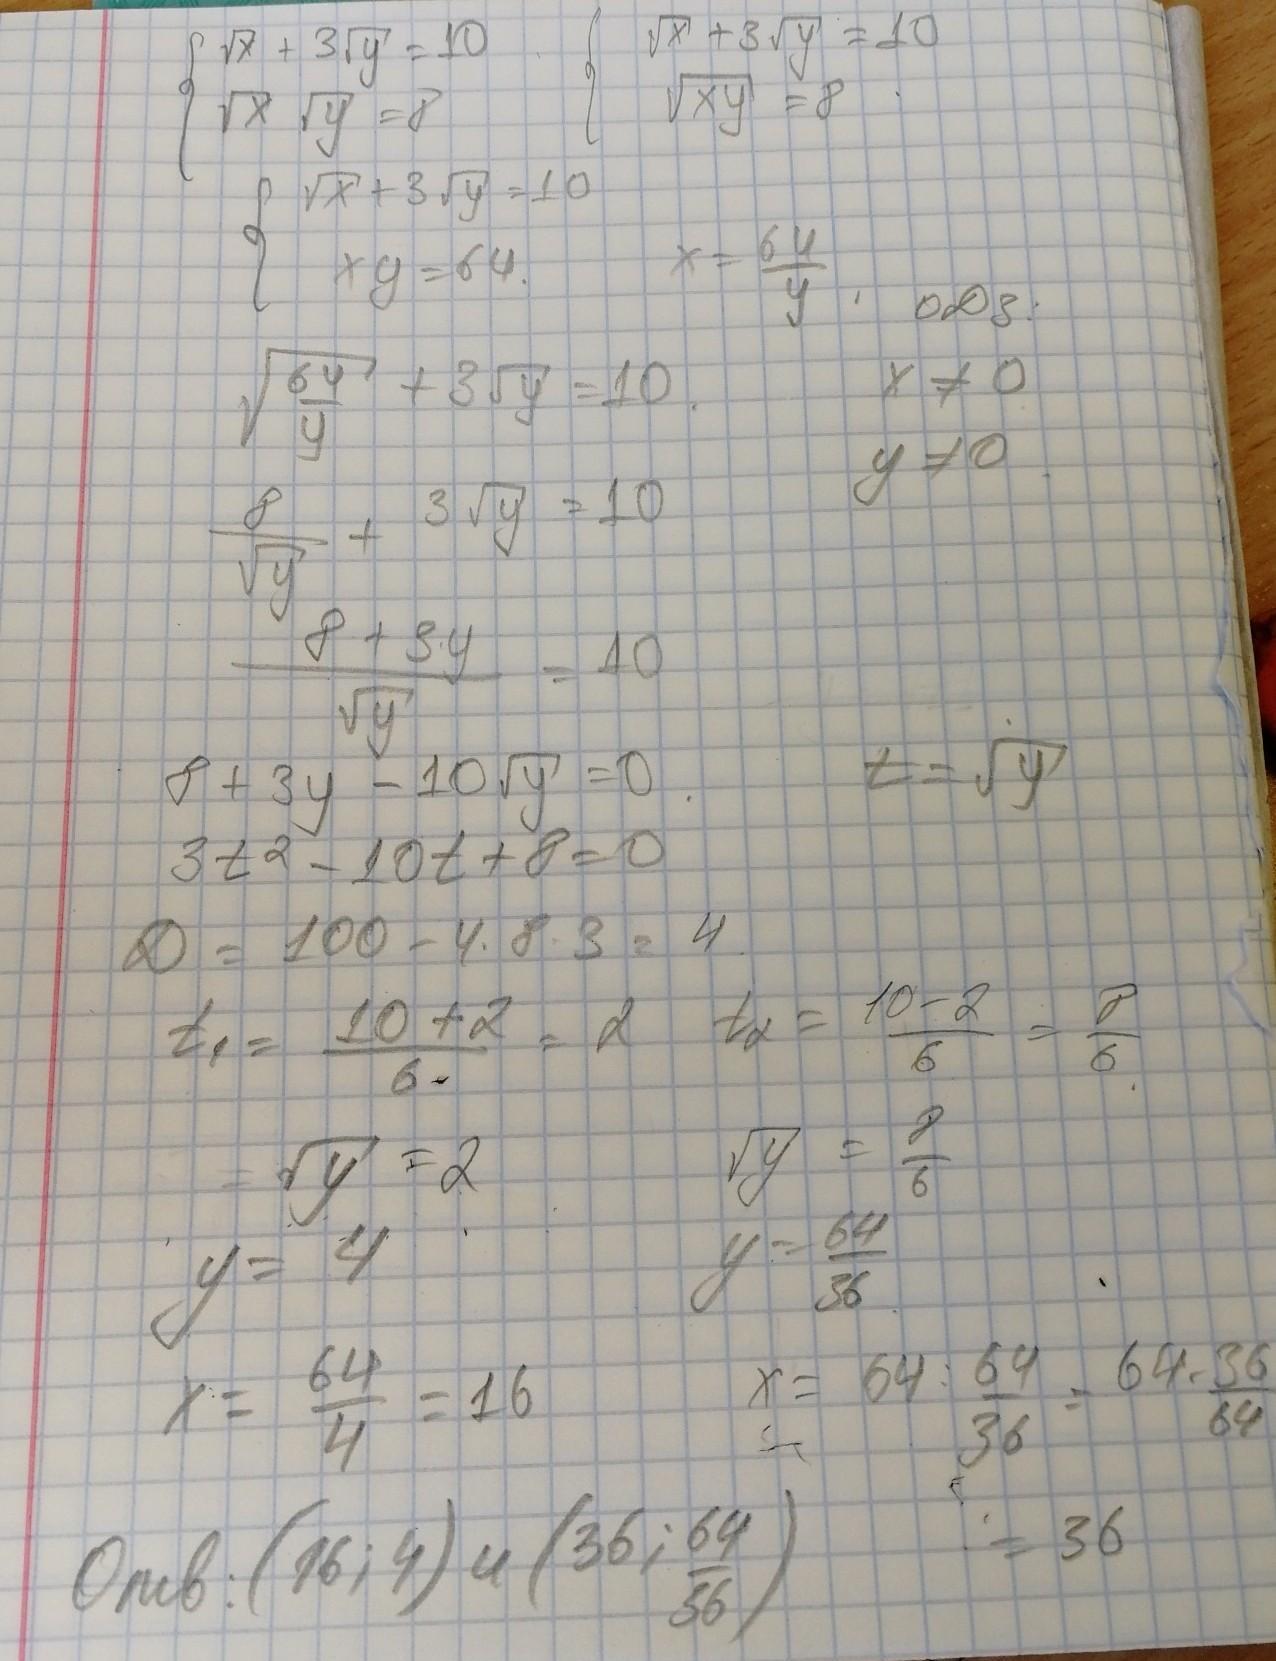 { √x + 3√y = 10 { √x + 3√y = 10
√x √y = 8 √xy = 8
{ √x + 3√y = 10
xy = 64. x = 64/y
ОДЗ:
√(64/y) + 3√y = 10. x ≠ 0
y ≠ 0
8/√y + 3√y = 10
(8 + 3·y)/√y = 10
8 + 3y - 10√y = 0. t = √y
3t² - 10t + 8 = 0
D = 100 - 4·8·3 = 4
t₁ = (10 + 2)/6 = 2 t₂ = (10 - 2)/6 = 8/6
= √y = 2 √y = 8/6
y = 4 y = 64/36
x = 64/4 = 16 x = 64 : 64/36 = 64 · 36/64
= 36
Отв: (16; 4) и (36; 64/36)